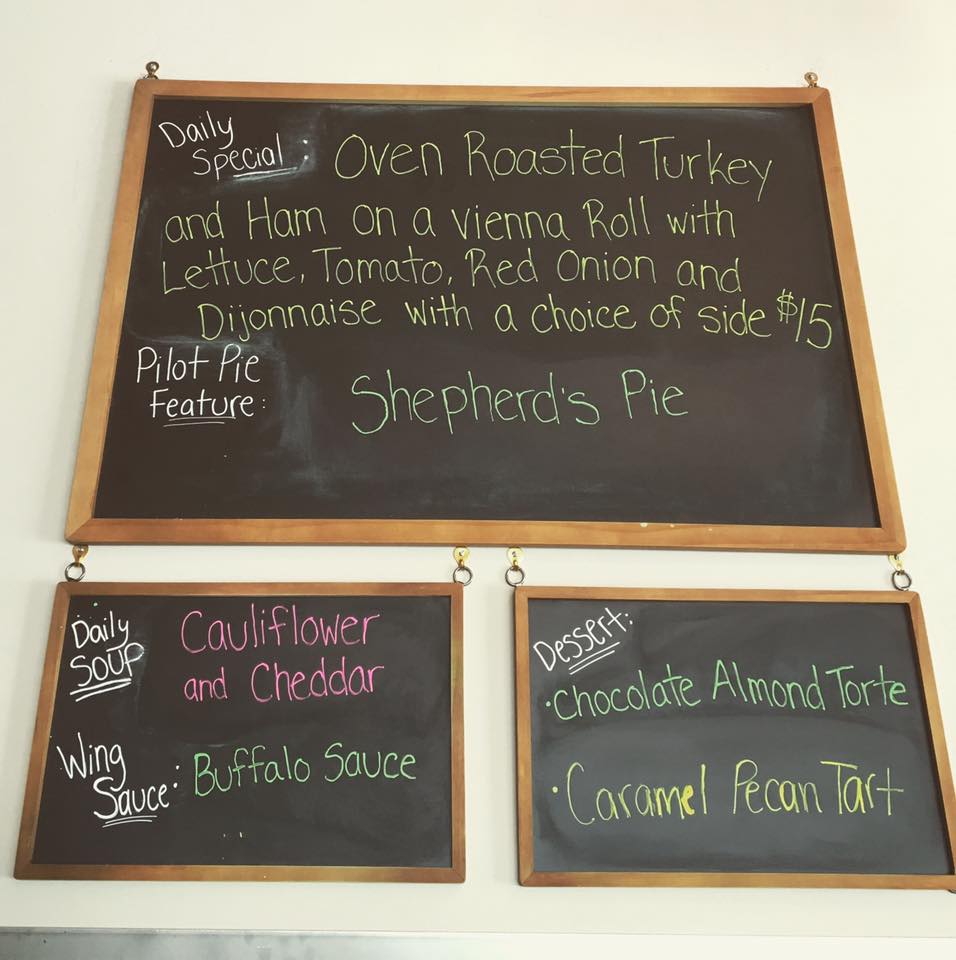 Daily
Special: Oven Roasted Turkey
and Ham on a Vienna Roll with
Lettuce, Tomato, Red Onion and
Dijonnaise with a choice of side $15
Pilot Pie
Feature: Shepherd's Pie
Daily
SOUP
Cauliflower
and Cheddar
Wing
Sauce: Buffalo Sauce
Dessert:
·Chocolate Almond Torte
·Caramel Pecan Tart